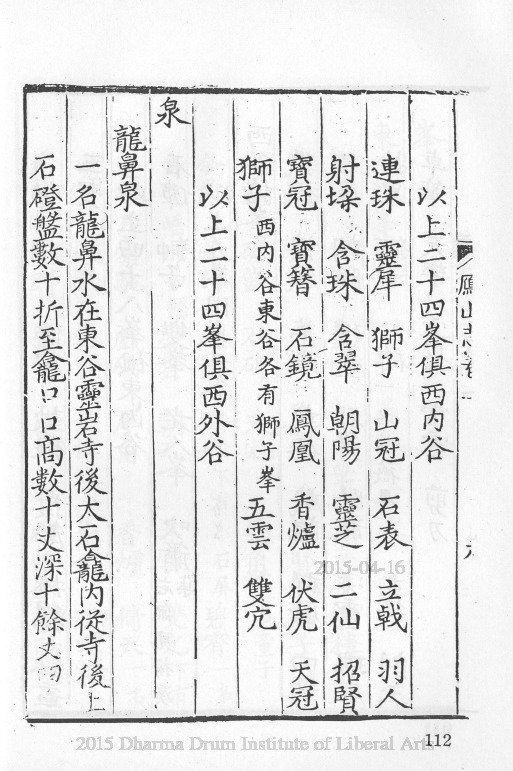 以上二十四峯俱西内谷
連珠 靈犀 獅子 山冠 石表 立戟 羽人
射垜 含珠 含翠 朝陽 靈芝 二仙 招賢
寶冠 寶簪 石鏡 鳳凰 香爐 伏虎 天冠
獅子西内谷東谷各有獅子峯 五雲 雙穴
以上二十四峯俱西外谷
泉
龍鼻泉
一名龍鼻水在東谷靈岩寺後大石龕内從寺後上
石磴盤數十折至龕口口高數十丈深十餘丈
山志卷一
2015-04-16
112
2015 Dharma Drum Institute of Liberal Arts